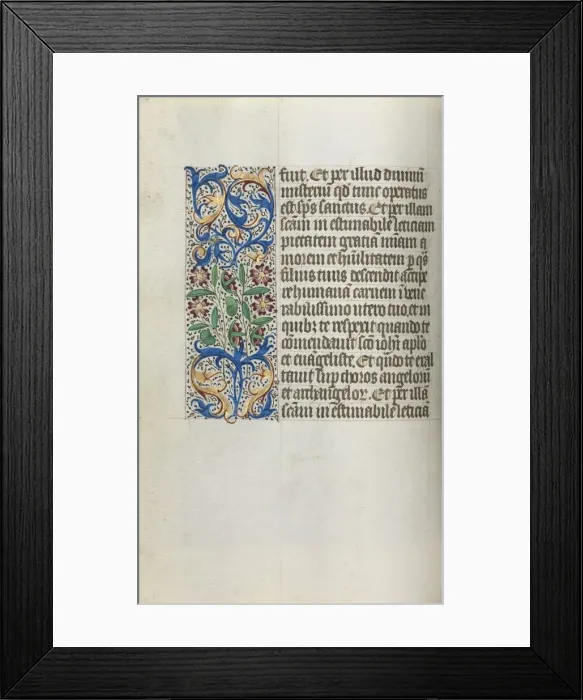 fuit. Et per illud diuinū
misteriū qđ tunc operatus
est sp̄s sanctus. Et per illam
scām in estimabilē leticiam
pietatem gratiā mīam a
morem et hūilitatem p qs
filius tuus descendit accipe
re humanā carnem ī vene
rabilissimo utero tuo, et in
quibꝫ te respexit quando te
cōmendauit scō iohī aplō
et euāgeliste. Et qn̄do te exal
tauit sup choros angelorū
et archangelorꝫ. Et per illā
scām in estimabilē leticiā